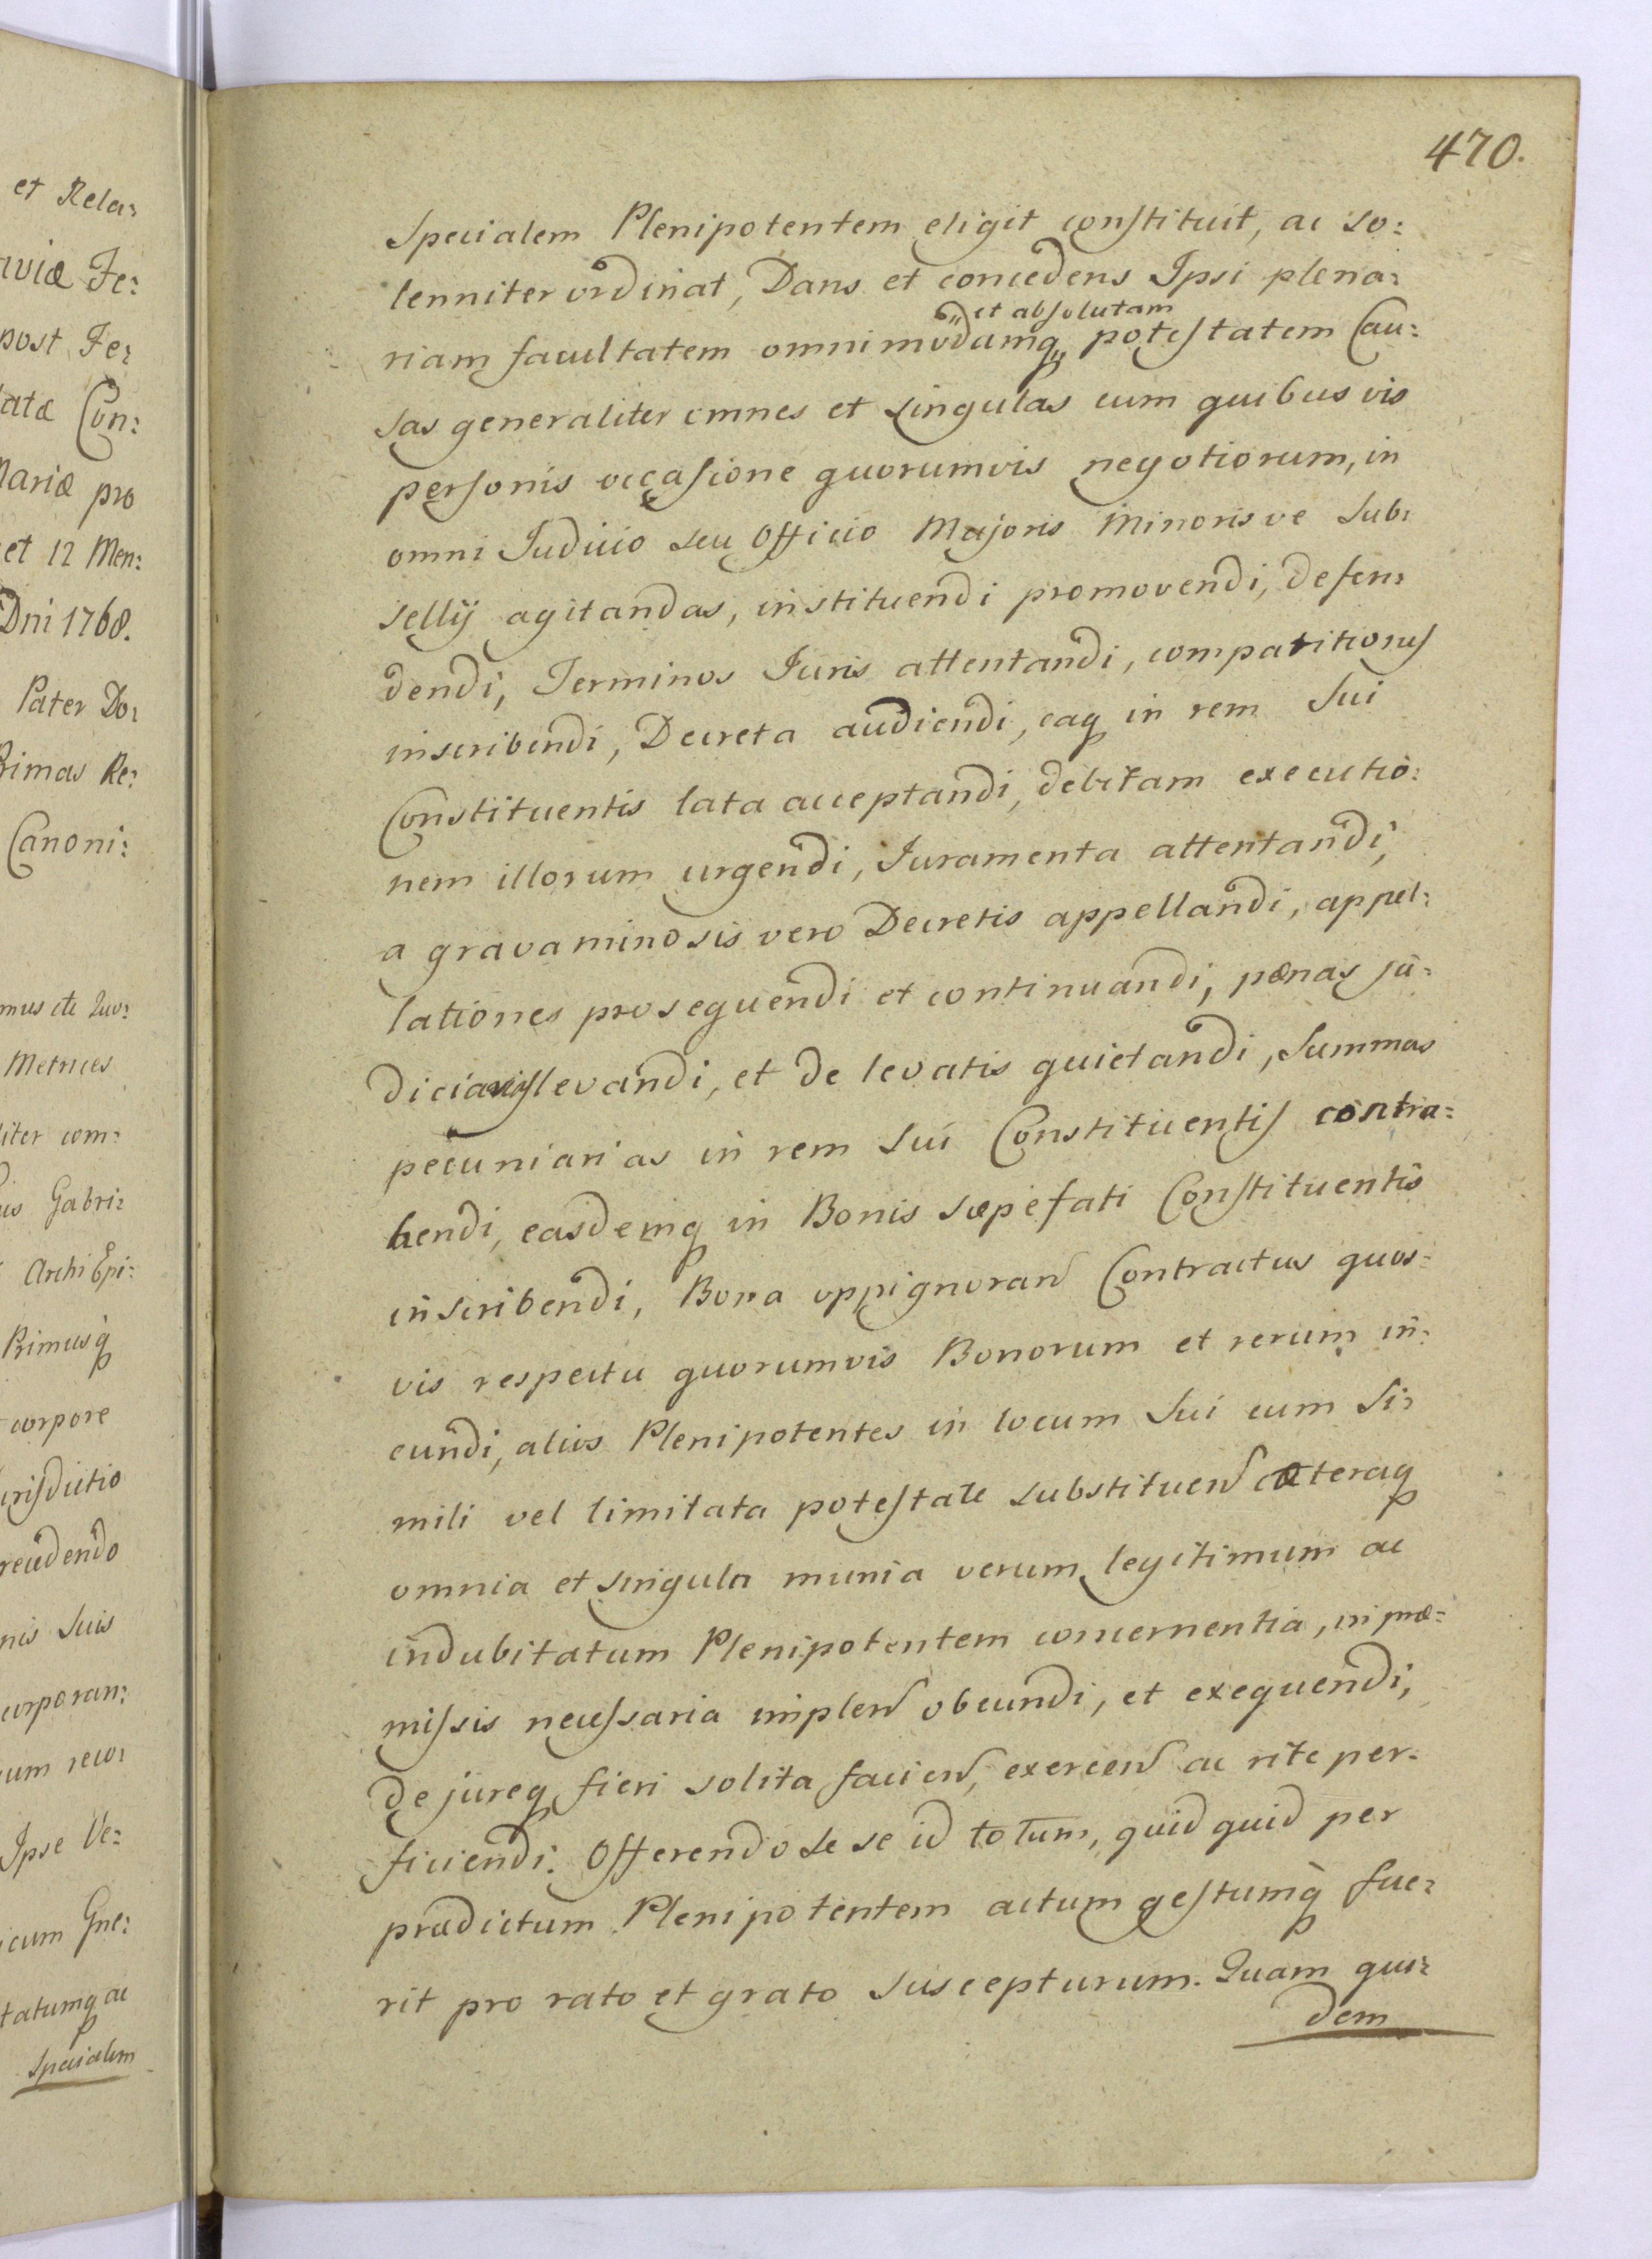 et Rela:
aviæ Fe:
post Fe:
latæ Con:
Mariæ pro
et 12 Men:
Dni 1768.
Pater Do:
Rimas Re:
Canoni:
Metrices
liter com:
Gabri:
Archi Epi:
Rimusq̀
corpore
urisdictio
recedendo
nis Suis
corporan:
Ipse Ve:
icum Gne:
tatumq ac
Specialem
470.
Specialem Plenipotentem eligit constituit, ac So:
lenniter ordinat, Dans et concedens Ipsi plena:
et absolutam
riam facultatem omnimodamq, potestatem Cau:
sas generaliter omnes et Singulas cum quibus vis
personis occasione quorumvis negotiorum, in
omni Judicio seu Officio Majoris Minoris ve Sub:
sellij agitandas, instituendi promovendi, defen:
dendi, Terminos Juris attentandi, comparitiones
inscribendi, Decreta audiendi, eaq in rem Sui
Constituentis lata acceptandi, debitam executio:
nem illorum urgendi, Juramenta attentandi,
a gravaminosis vero Decretis appellandi, appel:
lationes prosequendi et continuandi, pœnas ju:
diciarias levandi, et de levatis quietandi, Summas
pecuniarias in rem Sui Constituentis contra=
hendi, easdemq in Bonis Sæpefati Constituentis
inscribendi, Bona oppignoran Contractus quos=
vis respectu quorumvis Bonorum et rerum in:
eundi, alios Plenipotentes in locum Sui cum Si:
mili vel limitata potestate substituen cæteraq
omnia et Singula munia verum legitimum ac
indubitatum Plenipotentem concernentia, in præ=
missis necessaria implen obeundi, et exequendi,
de jureq fieri solita facien, exercen ac rite per-
ficiendi. Offerendo se se id totum, quid quid per
prædictum Plenipotentem actum gestumq̀ fue:
rit pro rato et grato Suscepturum. Quam qui:
dem